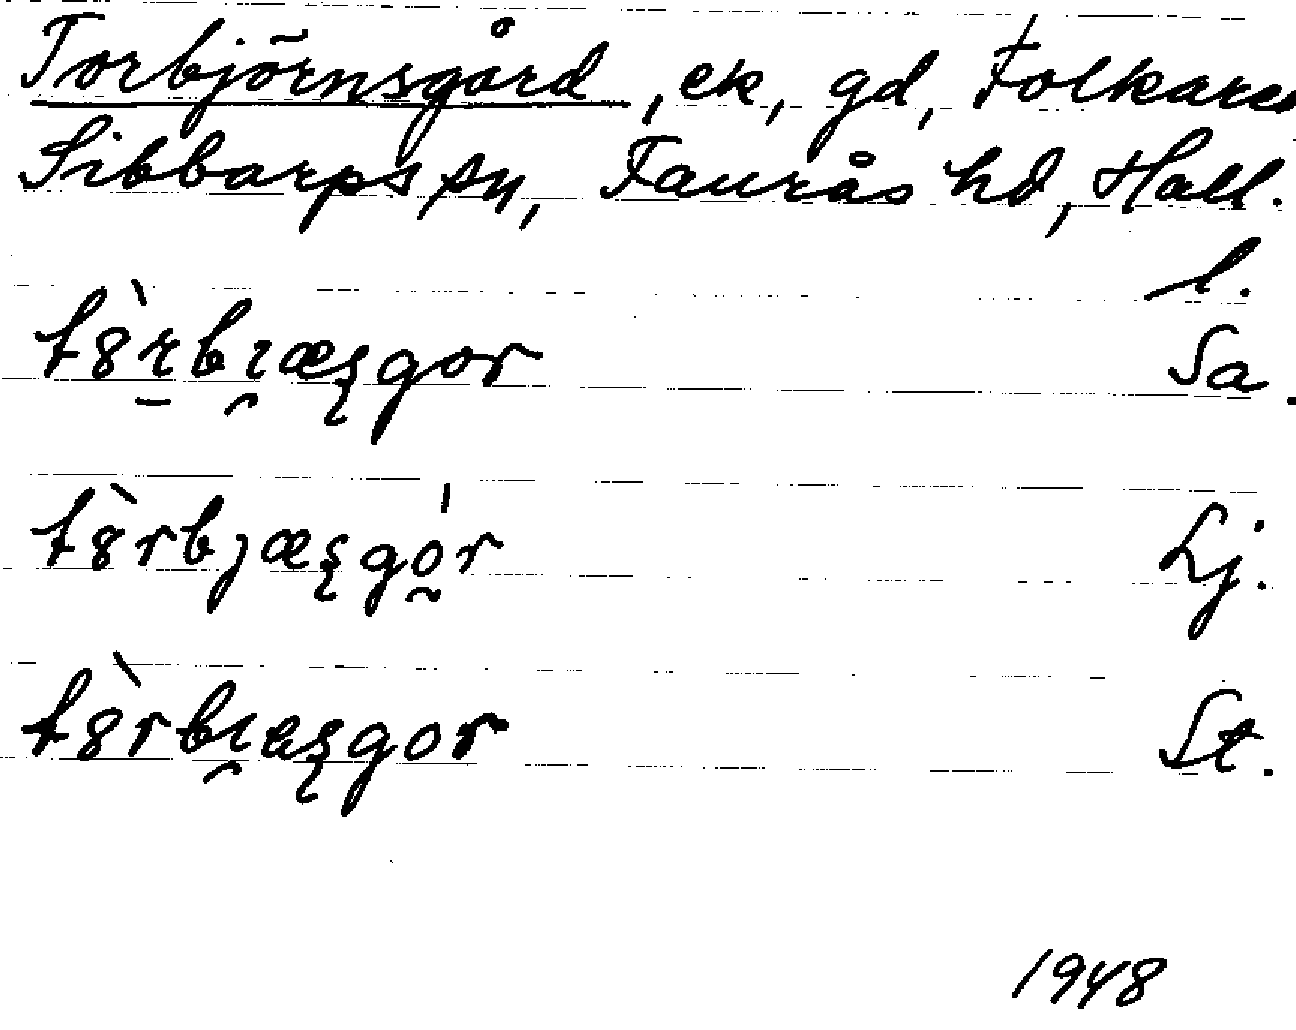 Torbjörnsgård, ek, gd, Folkared
Sibbarps sn, Faurås hd, Hall.
l.
tȣ̀rbıæșgor Sa.
tȣ̀rbȷæșgór Lj.
tȣ̀rbıæșgor St.
1948